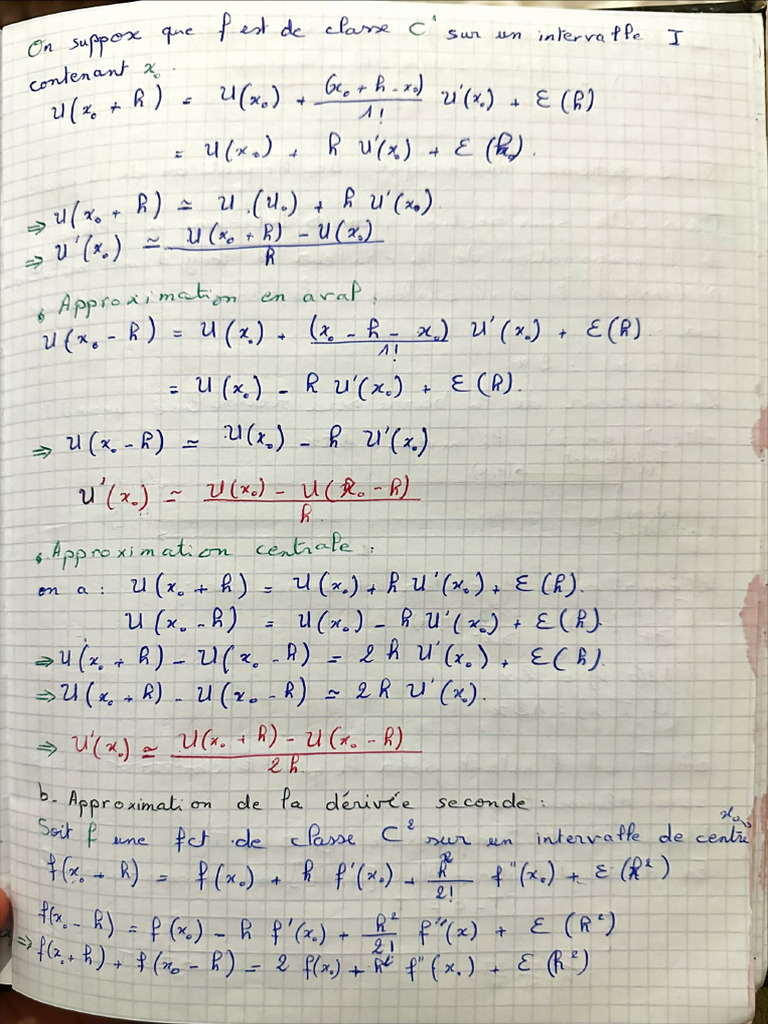 On suppose que f est de classe C¹ sur un intervalle I
contenant x₀.
U(x₀ + h) = U(x₀) + (x₀ + h - x₀)/1! U'(x₀) + ε(h)
= U(x₀) + h U'(x₀) + ε(h).
⇒ U(x₀ + h) ≃ U.(U₀) + h U'(x₀)
⇒ U'(x₀) ≃ (U(x₀ + h) - U(x₀))/h
Approximation en aval.
U(x₀ - h) = U(x₀) + (x₀ - h - x₀)/1! U'(x₀) + ε(h)
= U(x₀) - h U'(x₀) + ε(h).
⇒ U(x₀ - h) ≃ U(x₀) - h U'(x₀)
U'(x₀) ≃ (U(x₀) - U(x₀ - h))/h
Approximation centrale :
on a : U(x₀ + h) = U(x₀) + h U'(x₀) + ε(h).
U(x₀ - h) = U(x₀) - h U'(x₀) + ε(h)
⇒ U(x₀ + h) - U(x₀ - h) = 2h U'(x₀) + ε(h)
⇒ U(x₀ + h) - U(x₀ - h) ≃ 2h U'(x₀).
⇒ U'(x₀) ≃ (U(x₀ + h) - U(x₀ - h))/2h
b- Approximation de la dérivée seconde :
Soit f une fct de classe C² sur un intervalle de centre x₀
f(x₀ + h) = f(x₀) + h f'(x₀) + h²/2! f''(x₀) + ε(h²)
f(x₀ - h) = f(x₀) - h f'(x₀) + h²/2! f''(x) + ε(h²)
⇒ f(x₀ + h) + f(x₀ - h) = 2 f(x₀) + h² f''(x₀) + ε(h²)